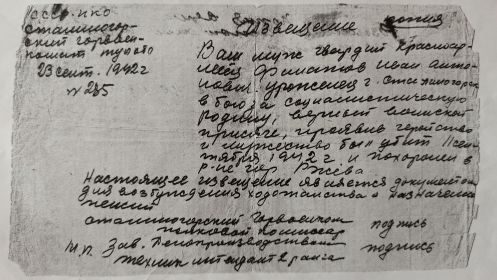 СССР НКО
Извещение копия
Сталиногор-
ский горвоен-
комат Тульс
23 сент. 1942 г
№ 235
Ваш муж гвардии красноар-
меец Филатов Иван Анто-
нович уроженец г. Сталиногорск
в боях за социалистическую
родину, верный воинской
присяге, проявив геройство
и мужество был убит 11 сен-
тября 1942 г. и похоронен в
р-не гор Ржева
Настоящее извещение является документом
для возбуждения ходотайства о назначении
пенсии
Сталиногорский Горвоенком
полковой комиссар подпись
М.П. Зав. делопроизводством подпись
техник интендант 2 ранга